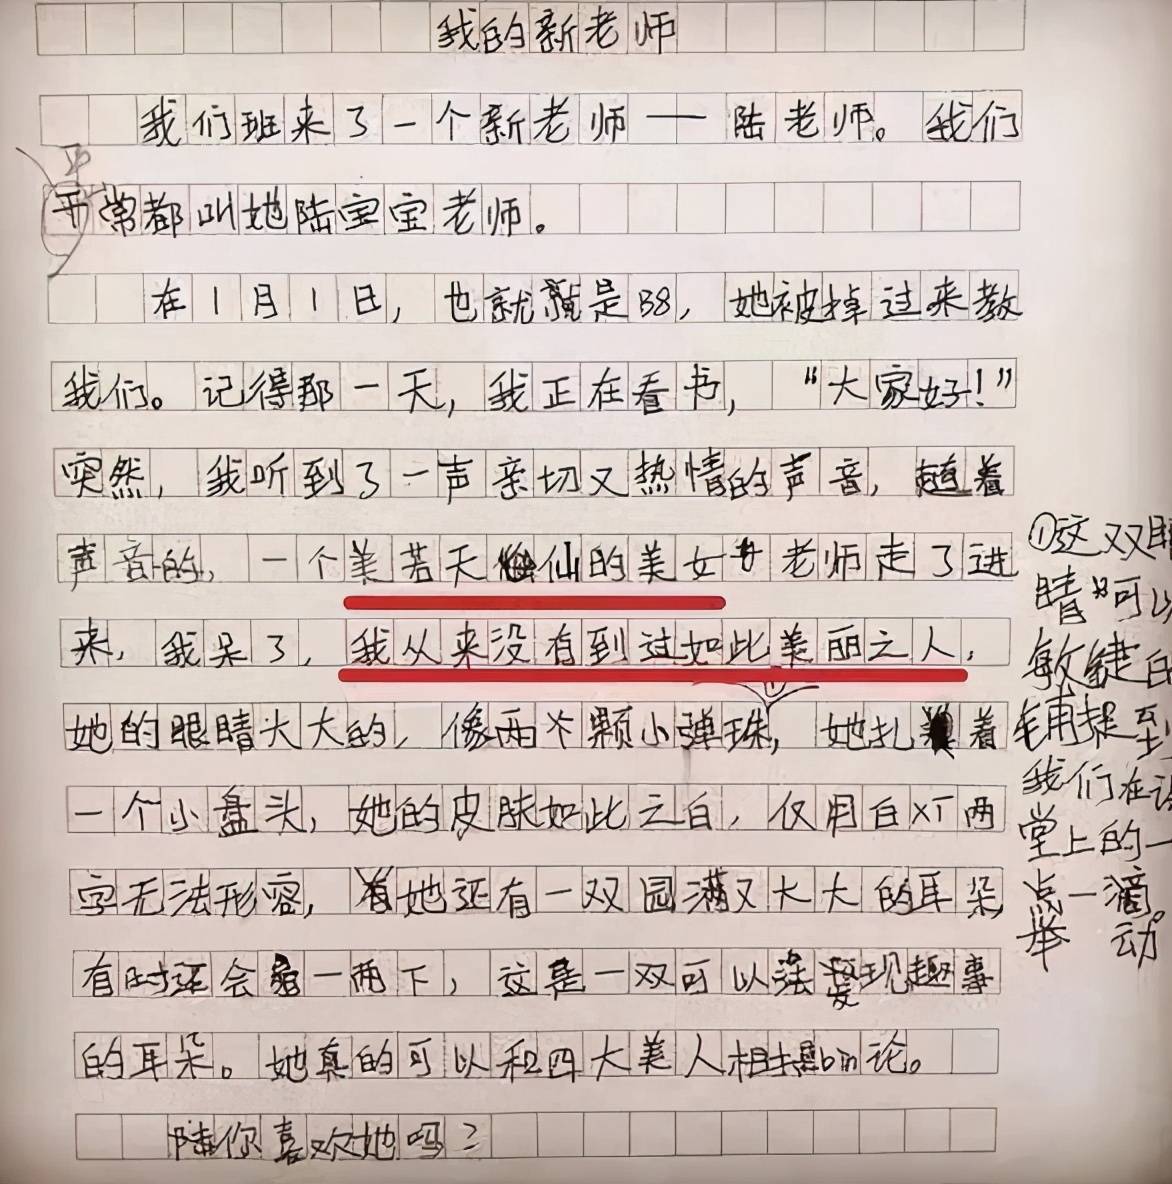 我的新老师
我们班来了一个新老师——陆老师。我们
平
常都叫她陆宝宝老师。
在1月1日，也就是38，她被掉过来教
我们。记得那一天，我正在看书，“大家好！”
突然，我听到了一声亲切又热情的声音，随着
声音的，一个美若天仙的美女老师走了进
来，我呆了，我从来没有到过如此美丽之人，
她的眼睛大大的，像两个颗小弹珠，她扎着
一个小盘头，她的皮肤如此之白，仅用白对两
字无法形容，她还有一双园满又大大的耳朵，
有时还会一两下，这是一双可以发现趣事
的耳朵。她真的可以和四大美人相提bìn论。
陆你喜欢她吗？
①这双眼
睛可以
敏键的
铺捉到
我们在课
堂上的一
点一滴。
举动